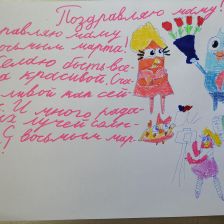 Поздравляю маму!
правляю маму
восьмым марта!
желаю быть все
да красивой. Сча
ливой как сей
с. И много радо
ых лучей солн
С восьмым мар